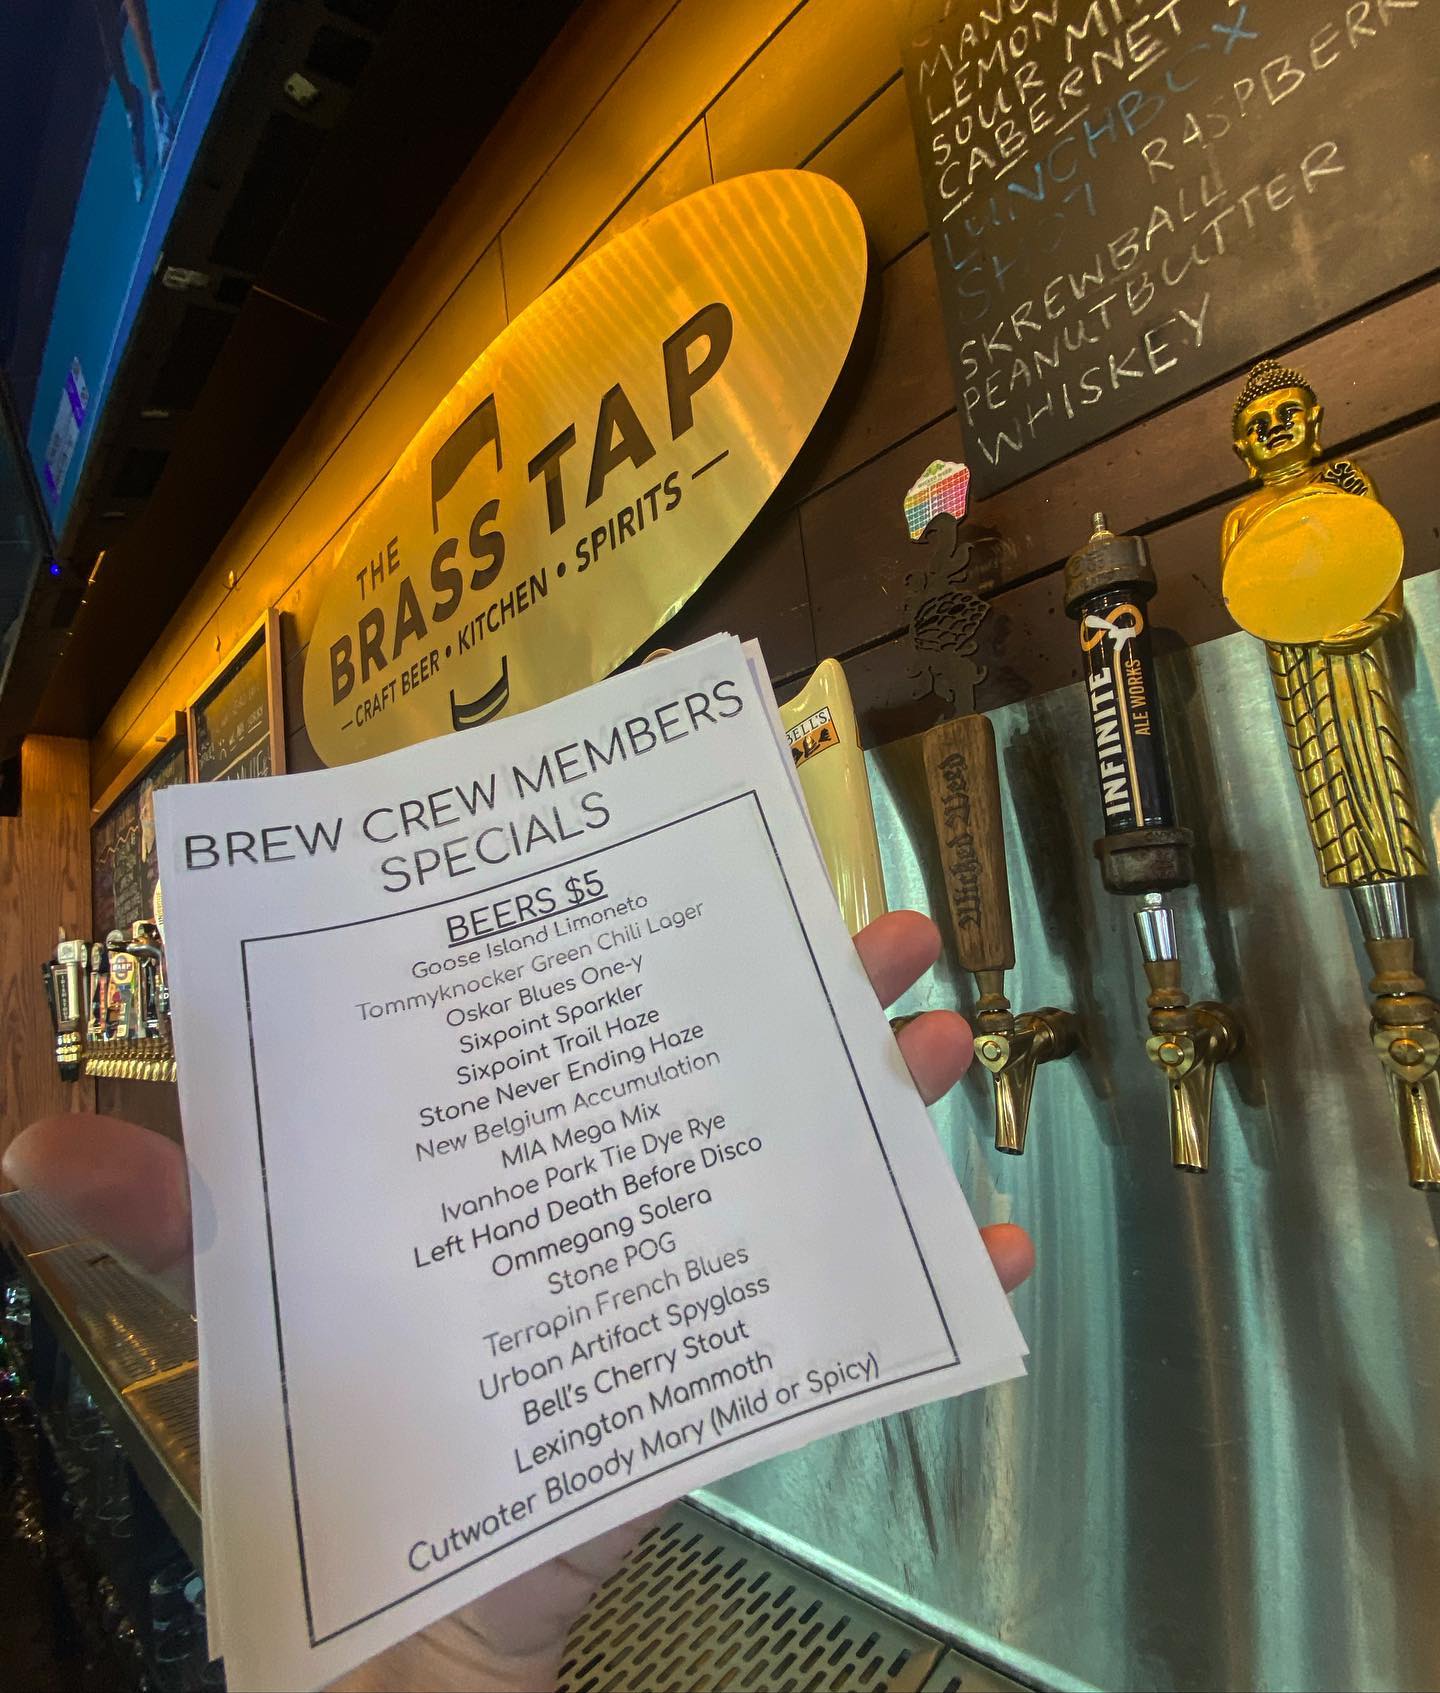 LEMON
SOUR
CABERNET
LUNCHBOX
RASPBERR
SKREWBALL
PEANUTBUTTER
WHISKEY
THE
BRASS TAP
CRAFT BEER • KITCHEN • SPIRITS
BELL'S
Wicked Weed
INFINITE
ALE WORKS
BREW CREW MEMBERS
SPECIALS
BEERS $5
Goose Island Limoneto
Tommyknocker Green Chili Lager
Oskar Blues One-y
Sixpoint Sparkler
Sixpoint Trail Haze
Stone Never Ending Haze
New Belgium Accumulation
MIA Mega Mix
Ivanhoe Park Tie Dye Rye
Left Hand Death Before Disco
Ommegang Solera
Stone POG
Terrapin French Blues
Urban Artifact Spyglass
Bell's Cherry Stout
Lexington Mammoth
Cutwater Bloody Mary (Mild or Spicy)